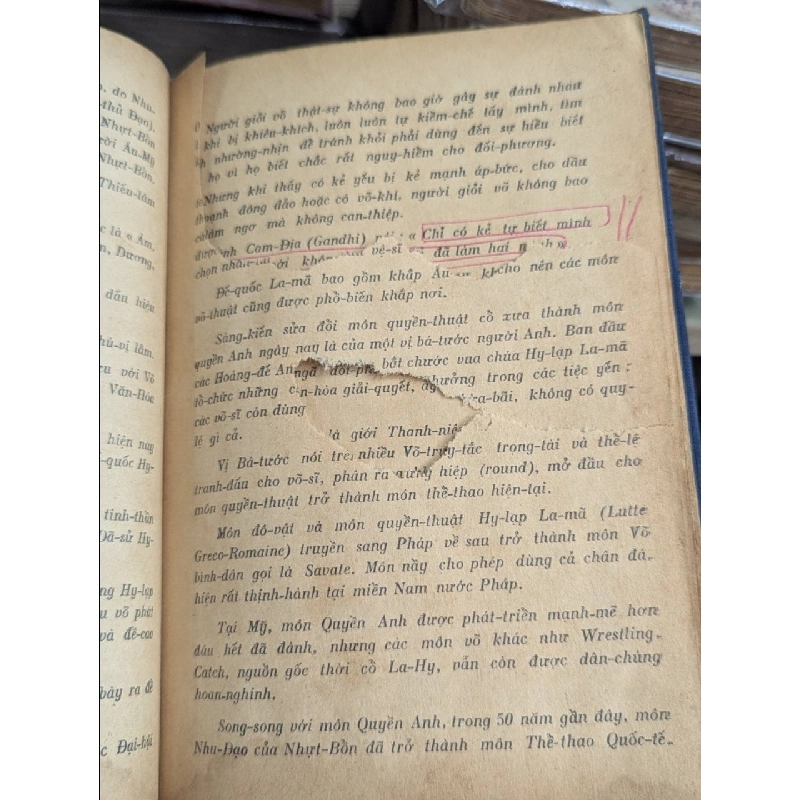 n, do Nhu-
-thủ Đạo),
Nhựt-Bổn
ời Âu-Mỹ
Nhựt-Bổn.
Thiếu-lâm
c là « Âm,
n, Dương,
dấu hiệu
hú-vị lắm.
u với Võ
Văn-Hóa
hiện nay
-quốc Hy-
tinh-thần
Dã-sử Hy-
ng Hy-lạp
u võ phát
và đề-cao
bày ra để
c Đại-hội
Người giỏi võ thật-sự không bao giờ gây sự đánh nhau
khi bị khiêu-khích, luôn luôn tự kiềm-chế lấy mình, tìm
nhường-nhịn để tránh khỏi phải dùng đến sự hiểu biết
họ vì họ biết chắc rất nguy-hiểm cho đối-phương.
Nhưng khi thấy có kẻ yếu bị kẻ mạnh áp-bức, cho dầu
đông đảo hoặc có võ-khí, người giỏi võ không bao
làm ngơ mà không can-thiệp.
Cam-Địa (Gandhi) Chỉ có kẻ tự biết mình
chọn khôn vệ-sĩ đã làm hai
Đế-quốc La-mã bao gồm khắp Âu cho nên các môn
võ-thuật cũng được phổ-biến khắp nơi.
Sáng-kiến sửa đổi môn quyền-thuật cổ xưa thành môn
quyền Anh ngày nay là của một vị bá-tước người Anh. Ban đầu
các Hoàng-đế An bắt chước vua chúa Hy-lạp La-mã
tổ-chức những hóa giải-quyết, hưởng trong các tiệc yến ;
các võ-sĩ còn dùng bãi, không có quy-
lệ gì cả. là giới Thanh-niê
Vị Bá-tước nói tre nhiều Võ-tru tắc trọng-tài và thể-lệ
tranh-đấu cho võ-sĩ, phân ra hiệp (round), mở đầu cho
môn quyền-thuật trở thành môn thể-thao hiện-tại.
Môn đô-vật và môn quyền-thuật Hy-lạp La-mã (Lutte
Greco-Romaine) truyền sang Pháp về sau trở thành môn Võ
bình-dân gọi là Savate. Môn nầy cho phép dùng cả chân đá,
hiện rất thịnh-hành tại miền Nam nước Pháp.
Tại Mỹ, môn Quyền Anh được phát-triển mạnh-mẽ hơn
đâu hết đã đành, nhưng các môn võ khác như Wrestling-
Catch, nguồn gốc thời cổ La-Hy, vẫn còn được dân-chúng
hoan-nghinh.
Song-song với môn Quyền Anh, trong 50 năm gần đây, môn
Nhu-Đạo của Nhựt-Bổn đã trở thành môn Thể-thao Quốc-tế.